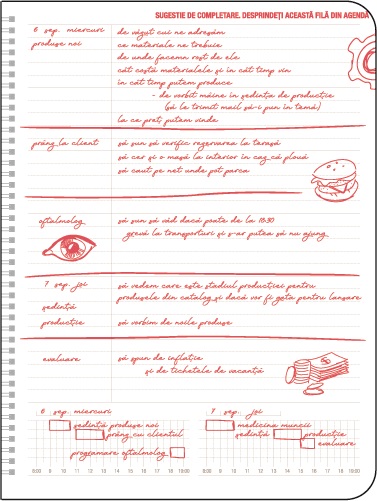 SUGESTIE DE COMPLETARE. DESPRINDEȚI ACEASTĂ FILĂ DIN AGENDĂ
6 sep. miercuri
de văzut cui ne adresăm
produse noi
ce materiale ne trebuie
de unde facem rost de ele
cât costă materialele și în cât timp vin
în cât timp putem produce
- de vorbit mâine în ședința de producție
(să le trimit mail să-i pun în temă)
la ce preț putem vinde
prânz la client
să sun să verific rezervarea la terasă
să cer și o masă la interior în caz că plouă
să caut pe net unde pot parca
oftalmolog
să sun să văd dacă poate de la 18:30
grevă la transporturi și s-ar putea să nu ajung
7 sep. joi
să vedem care este stadiul producției pentru
ședință
produsele din catalog și dacă vor fi gata pentru lansare
producție
să vorbim de noile produse
evaluare
să spun de inflație
și de tichetele de vacanță
6 sep. miercuri
7 sep. joi
ședință produse noi
medicina muncii
prânz cu clientul
ședință producție
programare oftalmolog
evaluare
8:00 9 10 11 12 13 14 15 16 17 18 19:00
8:00 9 10 11 12 13 14 15 16 17 18 19:00